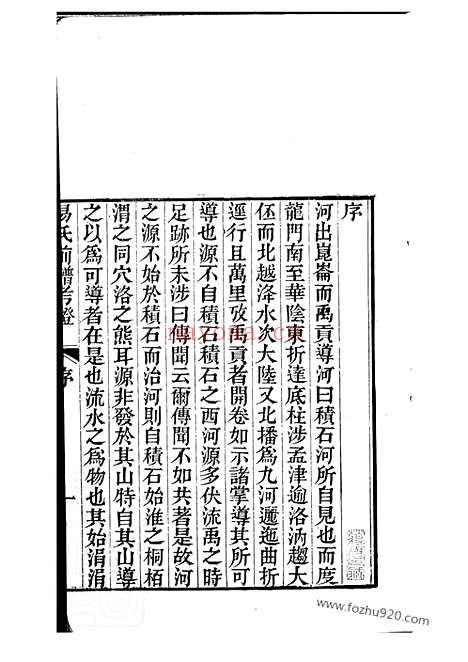 序
河出崑崙而禹貢導河曰積石河所自見也而度
龍門南至華陰東折達底柱涉孟津逾洛汭趨大
伾而北越降水大陸又北播爲九河邐迤曲折
逕行且萬里攷禹貢者開卷如示諸掌導其所可
導也源不自積石積石之西河源多伏流禹之時
足跡所未涉曰傳聞云爾傳聞不如共著是故河
之源不始於積石而治河則自積石始淮之桐栢
渭之同穴洛之熊耳源非發於其山特自其山導
之以爲可導者在是也流水之爲物也其始涓涓
易氏前譜考證
序
一
nayona.cn
www.fozhu920.com